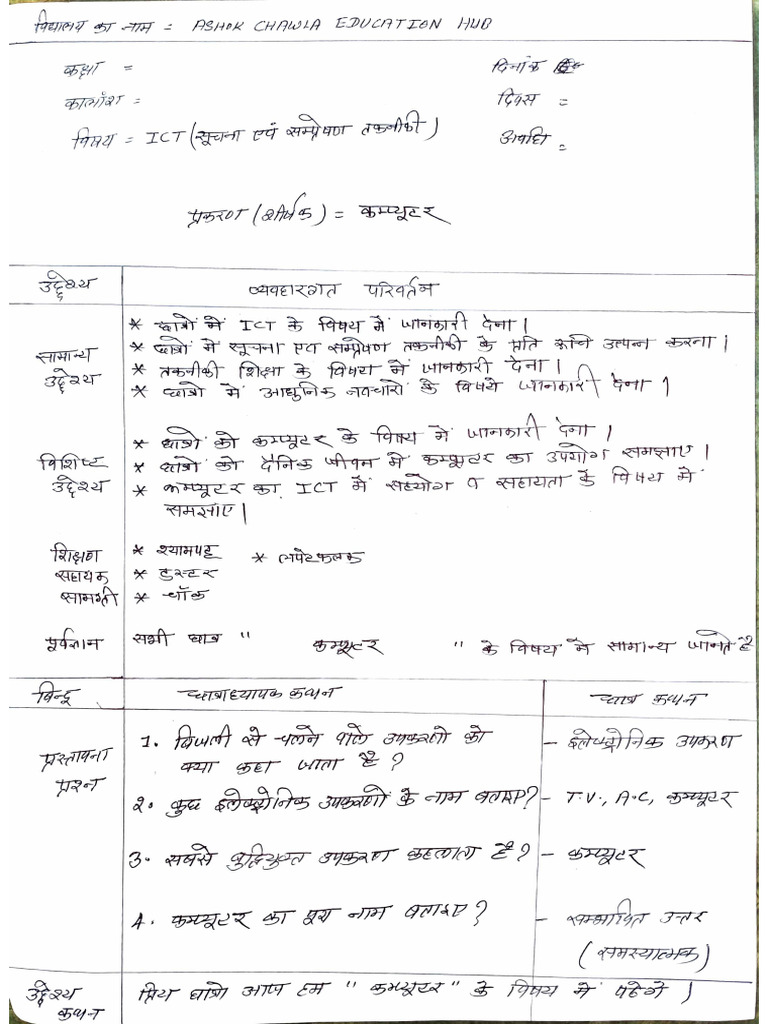 विद्यालय का नाम = ASHOK CHAWLA EDUCATION HUB
कक्षा =
दिनांक =
कालांश =
दिवस =
विषय = ICT (सूचना एवं सम्प्रेषण तकनीकी)
अवधि =
प्रकरण (शीर्षक) = कम्प्यूटर
उद्देश्य व्यवहारगत परिवर्तन
सामान्य उद्देश्य
* छात्रों में ICT के विषय में जानकारी देना।
* छात्रों में सूचना एवं सम्प्रेषण तकनीकी के प्रति रूचि उत्पन्न करना।
* तकनीकी शिक्षा के विषय में जानकारी देना।
* छात्रों में आधुनिक नवचारों के विषये जानकारी देना।
विशिष्ट उद्देश्य
* छात्रों को कम्प्यूटर के विषय में जानकारी देना।
* छात्रों को दैनिक जीवन में कम्प्यूटर का उपयोग समझाए।
* कम्प्यूटर का ICT में सहयोग व सहायता के विषय में
समझाए।
शिक्षण सहायक सामग्री
* श्यामपट्ट * लपेटफलक
* डस्टर
* चॉक
पूर्वज्ञान सभी छात्र " कम्प्यूटर " के विषय में सामान्य जानते है
बिन्दु छात्राध्यापक कथन छात्र कथन
प्रस्तावना प्रश्न
1. बिजली से चलने वाले उपकरणों को - इलेक्ट्रोनिक उपकरण
क्या कहा जाता है?
2. कुछ इलेक्ट्रोनिक उपकरणों के नाम बताए? - T.V., A.C, कम्प्यूटर
3. सबसे बुद्धियुक्त उपकरण कहलाता है? - कम्प्यूटर
4. कम्प्यूटर का पूरा नाम बताइए? - सम्भावित उत्तर
(समस्यात्मक)
उद्देश्य कथन
प्रिय छात्रों आज हम " कम्प्यूटर " के विषय में पढेगे।